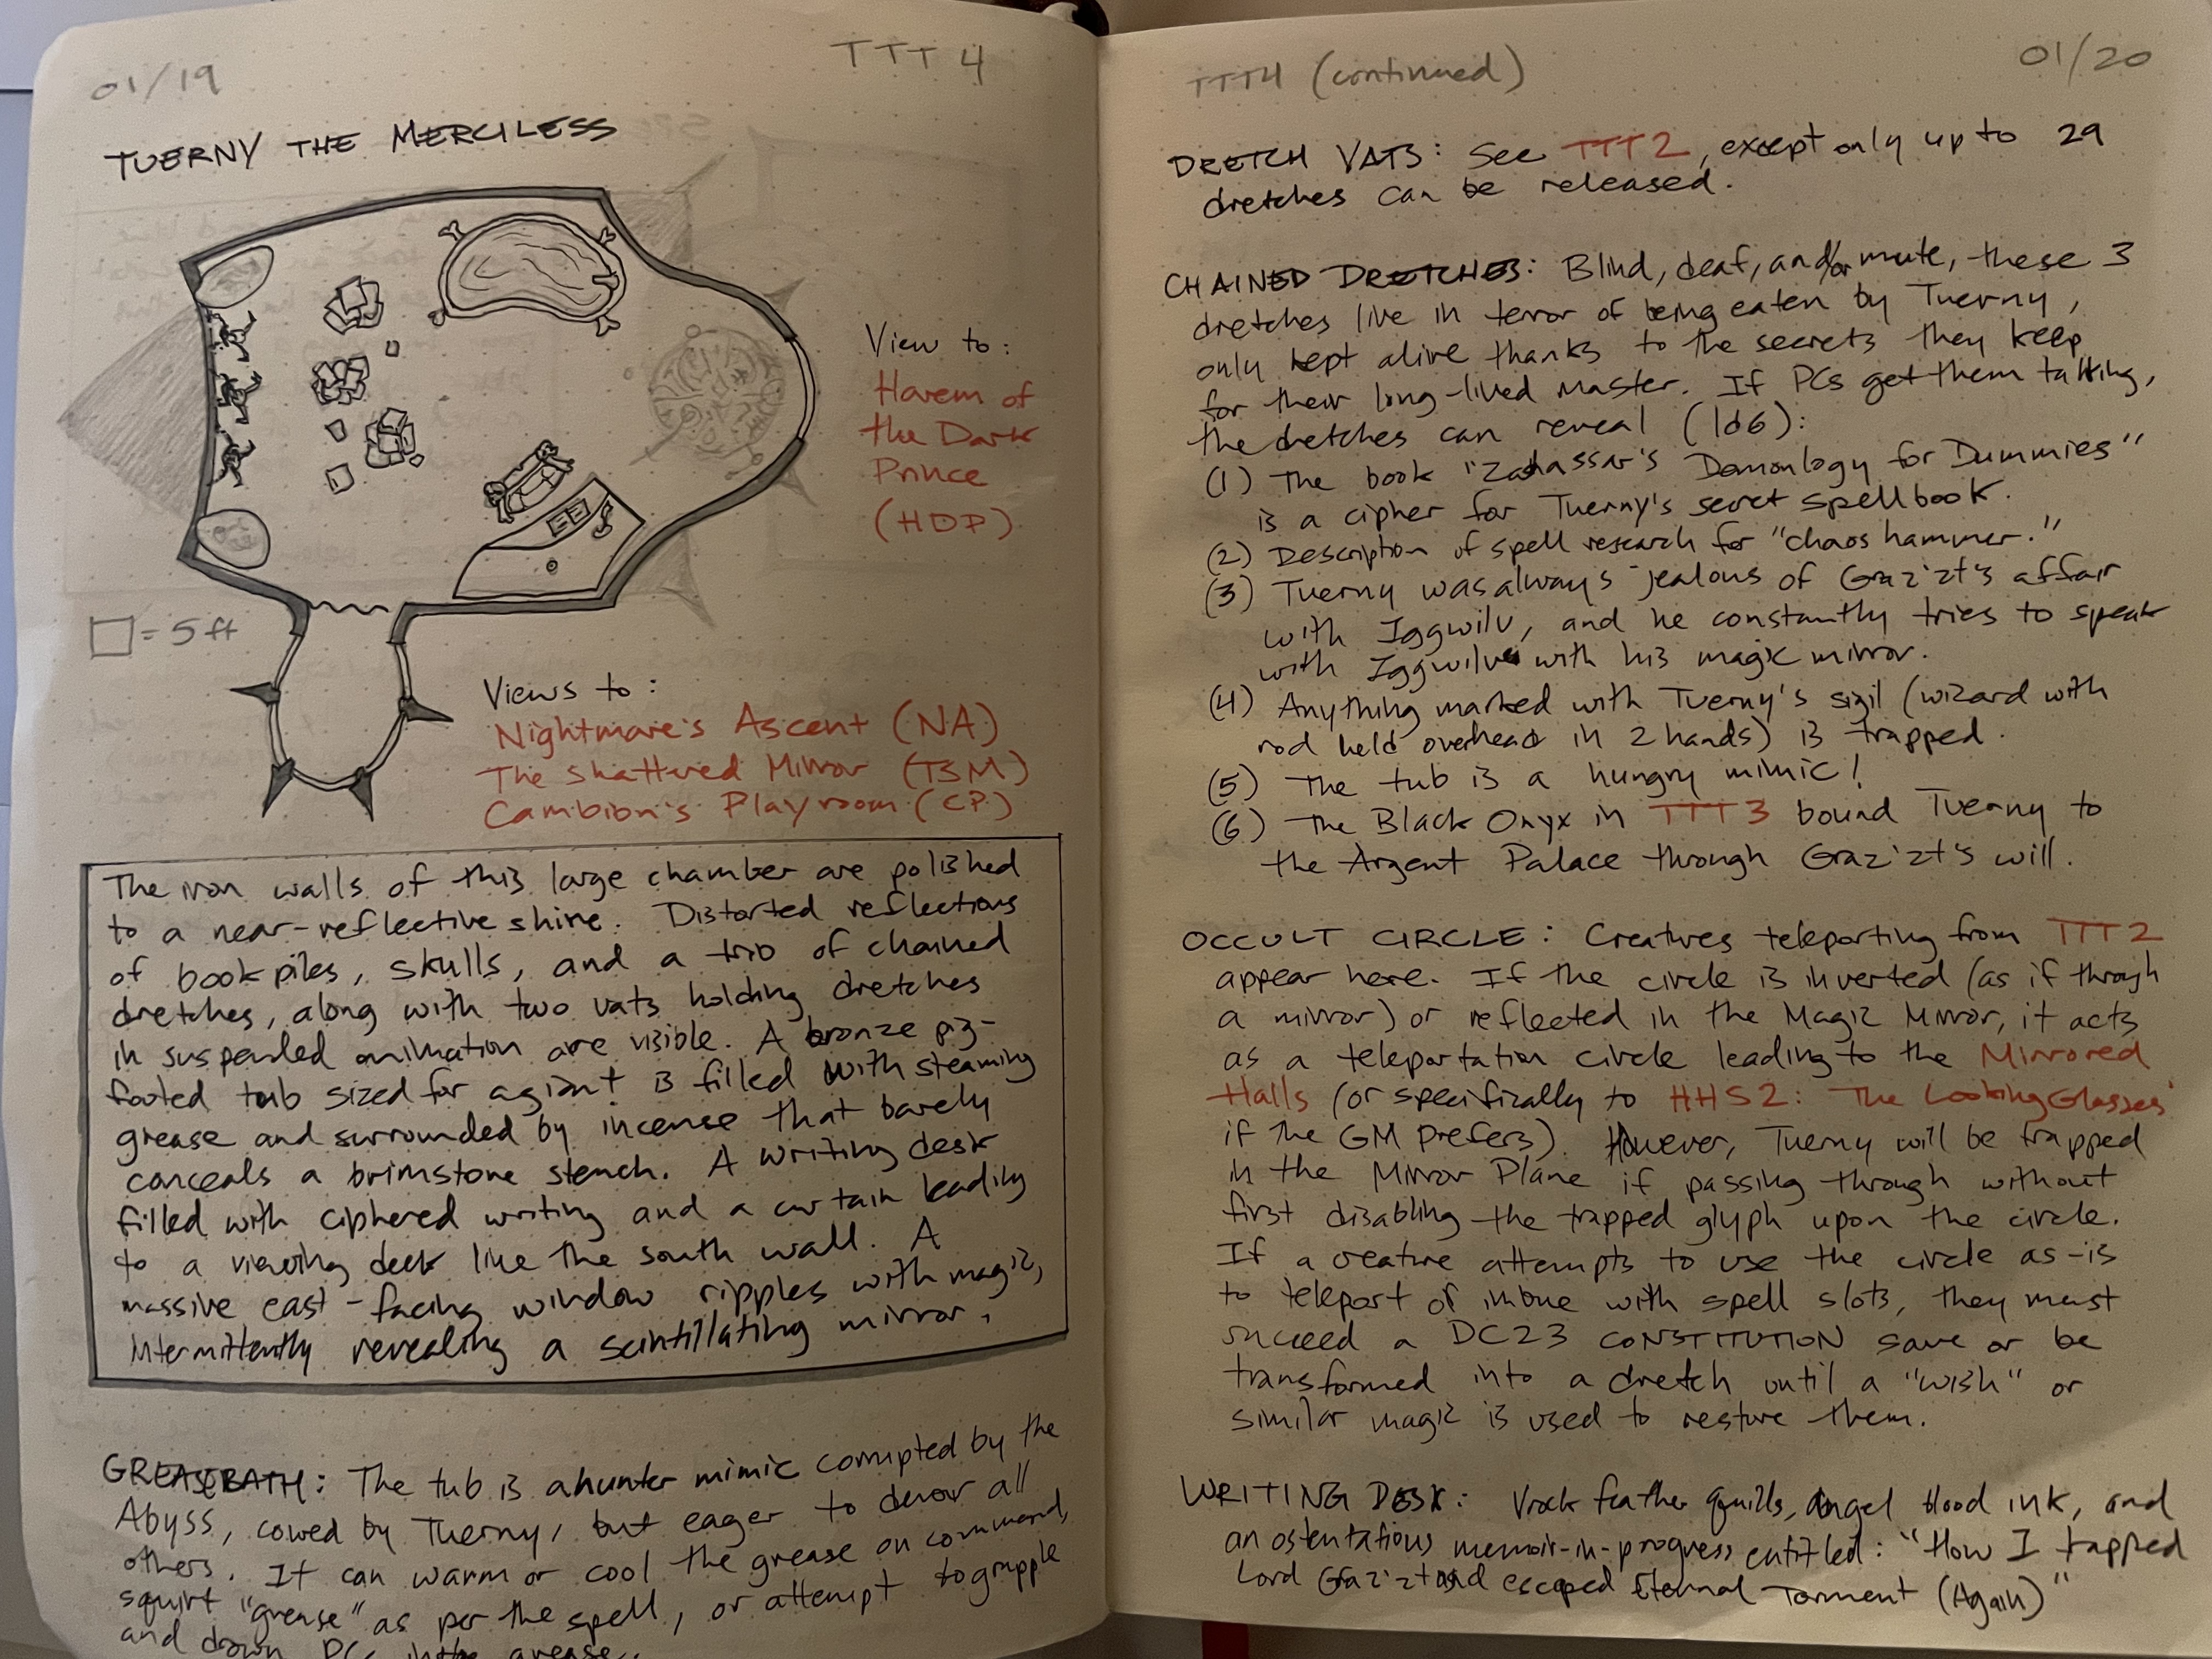 01/19
TTT 4
TUERNY THE MERCILESS
View to:
Harem of
the Dark
Prince
(HDP)
□ = 5 ft
Views to:
Nightmare's Ascent (NA)
The Shattered Mirror (TSM)
Cambion's Playroom (CP)
The iron walls of this large chamber are polished
to a near-reflective shine. Distorted reflections
of book piles, skulls, and a trio of chained
dretches, along with two vats holding dretches
in suspended animation are visible. A bronze pig-
footed tub sized for a giant is filled with steaming
grease and surrounded by incense that barely
conceals a brimstone stench. A writing desk
filled with ciphered writing and a curtain leading
to a viewing deck line the south wall. A
massive east-facing window ripples with magic,
intermittently revealing a scintillating mirror.
GREASE BATH: The tub is a hunter mimic corrupted by the
Abyss, cowed by Tuerny, but eager to devour all
others. It can warm or cool the grease on command,
squirt "grease" as per the spell, or attempt to grapple
and drown PCs in the grease.
TTT4 (continued)
01/20
DRETCH VATS: See TTT2, except only up to 29
dretches can be released.
CHAINED DRETCHES: Blind, deaf, and/or mute, these 3
dretches live in terror of being eaten by Tuerny,
only kept alive thanks to the secrets they keep
for their long-lived master. If PCs get them talking,
the dretches can reveal (1d6):
(1) The book "Zahassar's Demonlogy for Dummies"
is a cipher for Tuerny's secret spellbook.
(2) Description of spell research for "chaos hammer."
(3) Tuerny was always jealous of Graz'zt's affair
with Iggwilv, and he constantly tries to speak
with Iggwilv with his magic mirror.
(4) Anything marked with Tuerny's sigil (wizard with
rod held overhead in 2 hands) is trapped.
(5) The tub is a hungry mimic!
(6) The Black Onyx in TTT3 bound Tuerny to
the Argent Palace through Graz'zt's will.
OCCULT CIRCLE: Creatures teleporting from TTT2
appear here. If the circle is inverted (as if through
a mirror) or reflected in the Magic Mirror, it acts
as a teleportation circle leading to the Mirrored
Halls (or specifically to HHS2: The Looking Glasses
if the GM prefers). However, Tuerny will be trapped
in the Mirror Plane if passing through without
first disabling the trapped glyph upon the circle.
If a creature attempts to use the circle as-is
to teleport or imbue with spell slots, they must
succeed a DC23 CONSTITUTION save or be
transformed into a dretch until a "wish" or
similar magic is used to restore them.
WRITING DESK: Vrock feather quills, angel blood ink, and
an ostentatious memoir-in-progress entitled: "How I trapped
Lord Graz'zt and escaped Eternal Torment (Again)"